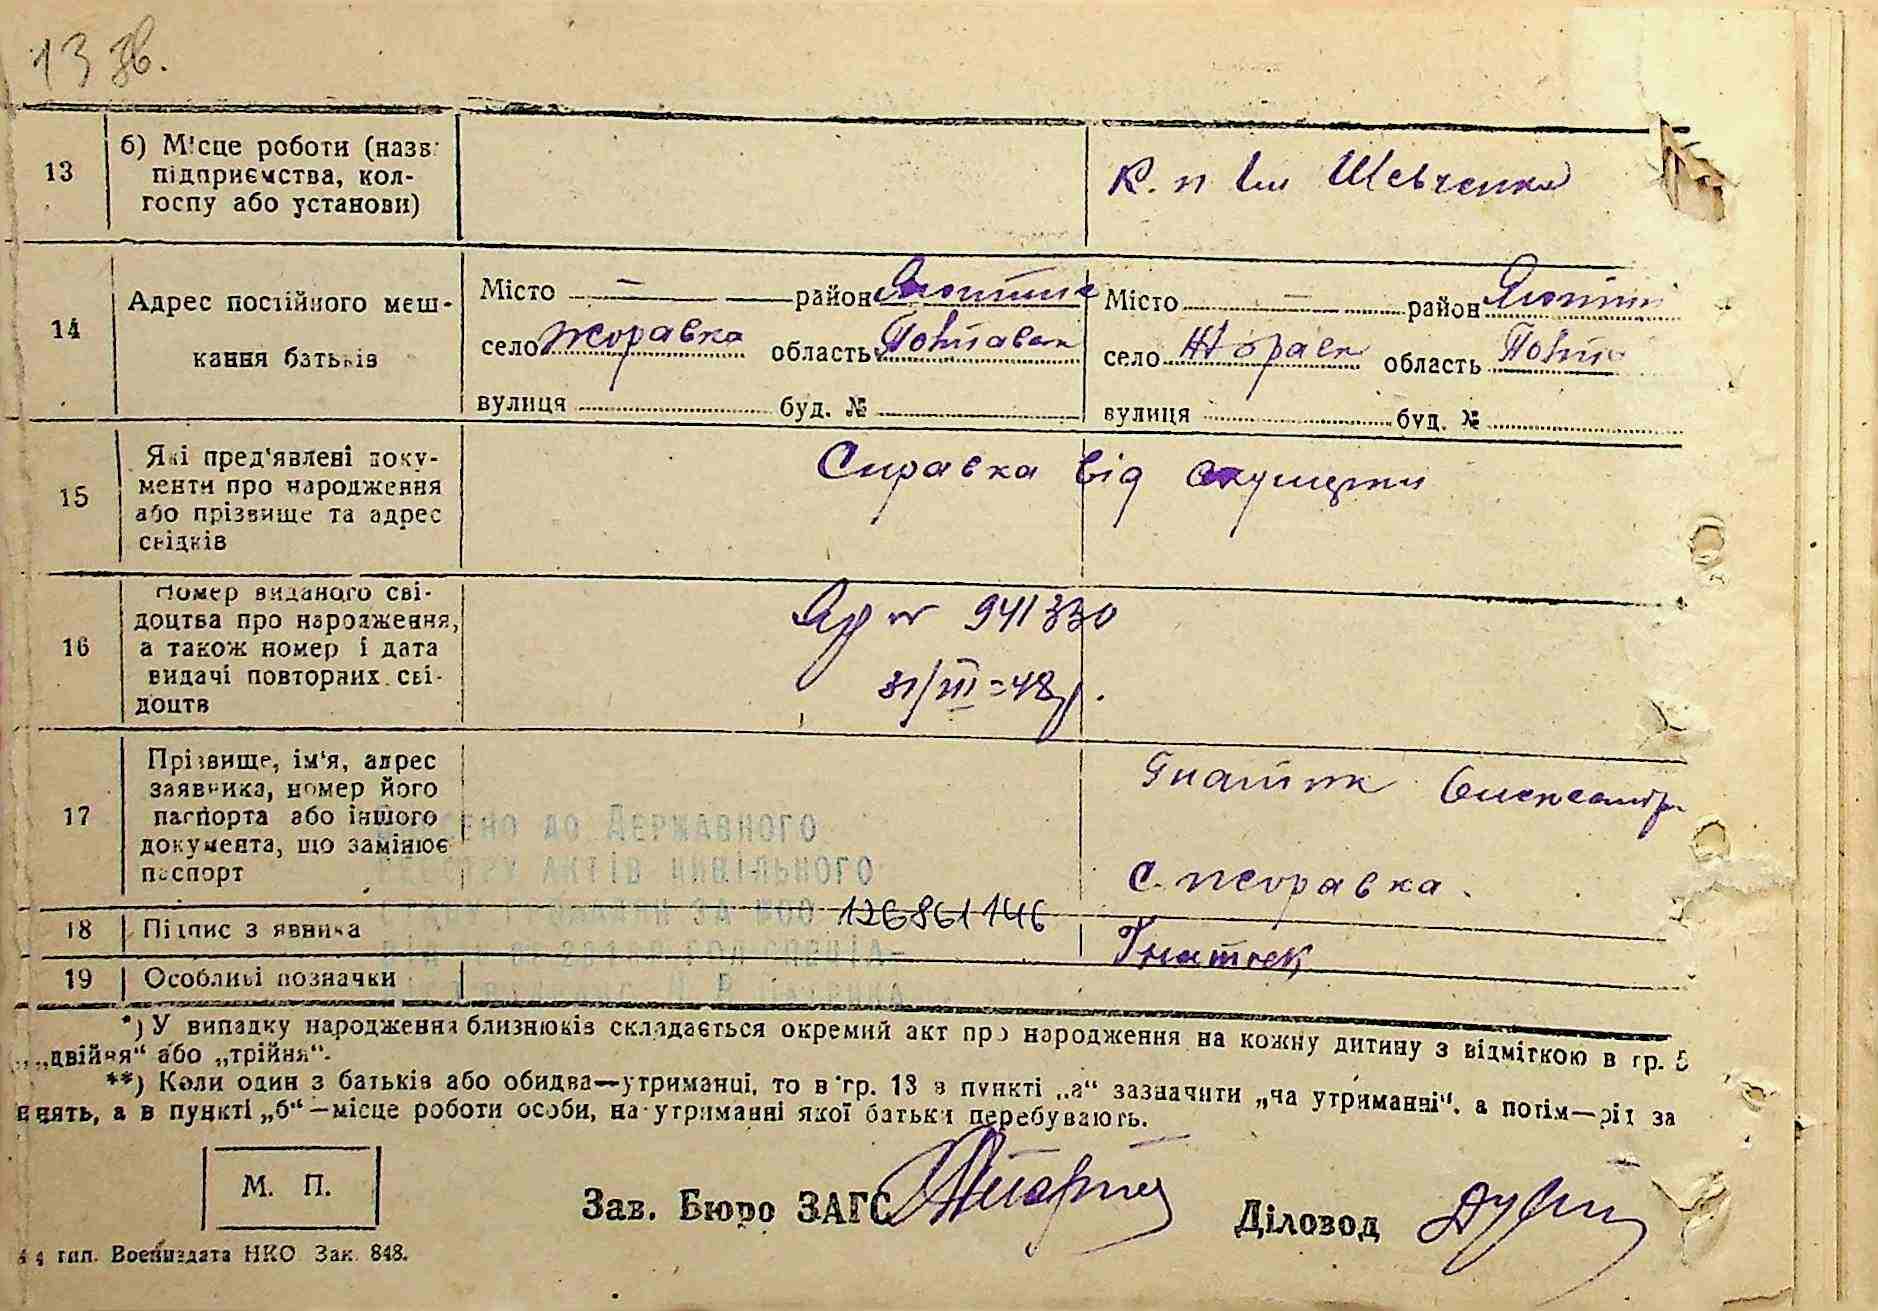 13 зв.
13
б) Місце роботи (назв:
підприємства, кол-
госпу або установи)
К. п Ім Шевченка
14
Адрес постійного меш-
кання батьків
Місто — район Яготинс
село Жоравка область Полтавськ
вулиця буд. №
Місто — район Яготин
село Жоравк область Полта
вулиця буд. №
15
Які пред'явлені доку-
менти про народження
або прізвище та адрес
свідків
Справка від акушерки
16
Номер виданого сві-
доцтва про народження,
а також номер і дата
видачі повторних сві-
доцтв
№ 941330
31/III-48р.
17
Прізвище, ім'я, адрес
заявника, номер його
паспорта або іншого
документа, що замінює
паспорт
Гнатюк Олександр
с. Жоравка.
Внесено до Державного
реєстру актів цивільного
стану громадян за №00 126861146
18
Підпис заявника
Гнатюк
19
Особливі позначки
*) У випадку народження близнюків складається окремий акт про народження на кожну дитину з відміткою в гр. 5
„двійня“ або „трійня“.
**) Коли один з батьків або обидва—утриманці, то в гр. 13 в пункті „а“ зазначити „на утриманні“, а потім—рід за
нять, а в пункті „б“—місце роботи особи, на утриманні якої батьки перебувають.
М. П.
Зав. Бюро ЗАГС
Діловод
тип. Воениздата НКО Зак. 848.